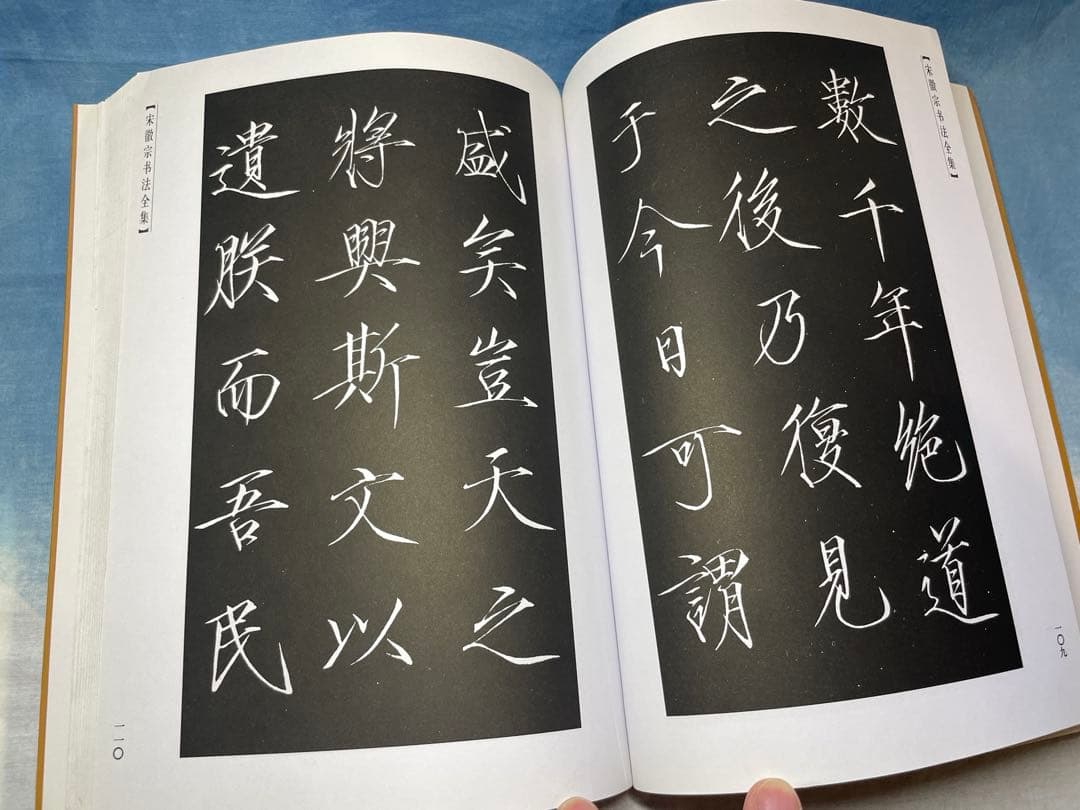 【宋徽宗书法全集】
數千年絶道
之後乃復見
于今日可謂
一〇九
盛矣豈天之
將興斯文以
遺朕而吾民
【宋徽宗书法全集】
一一〇